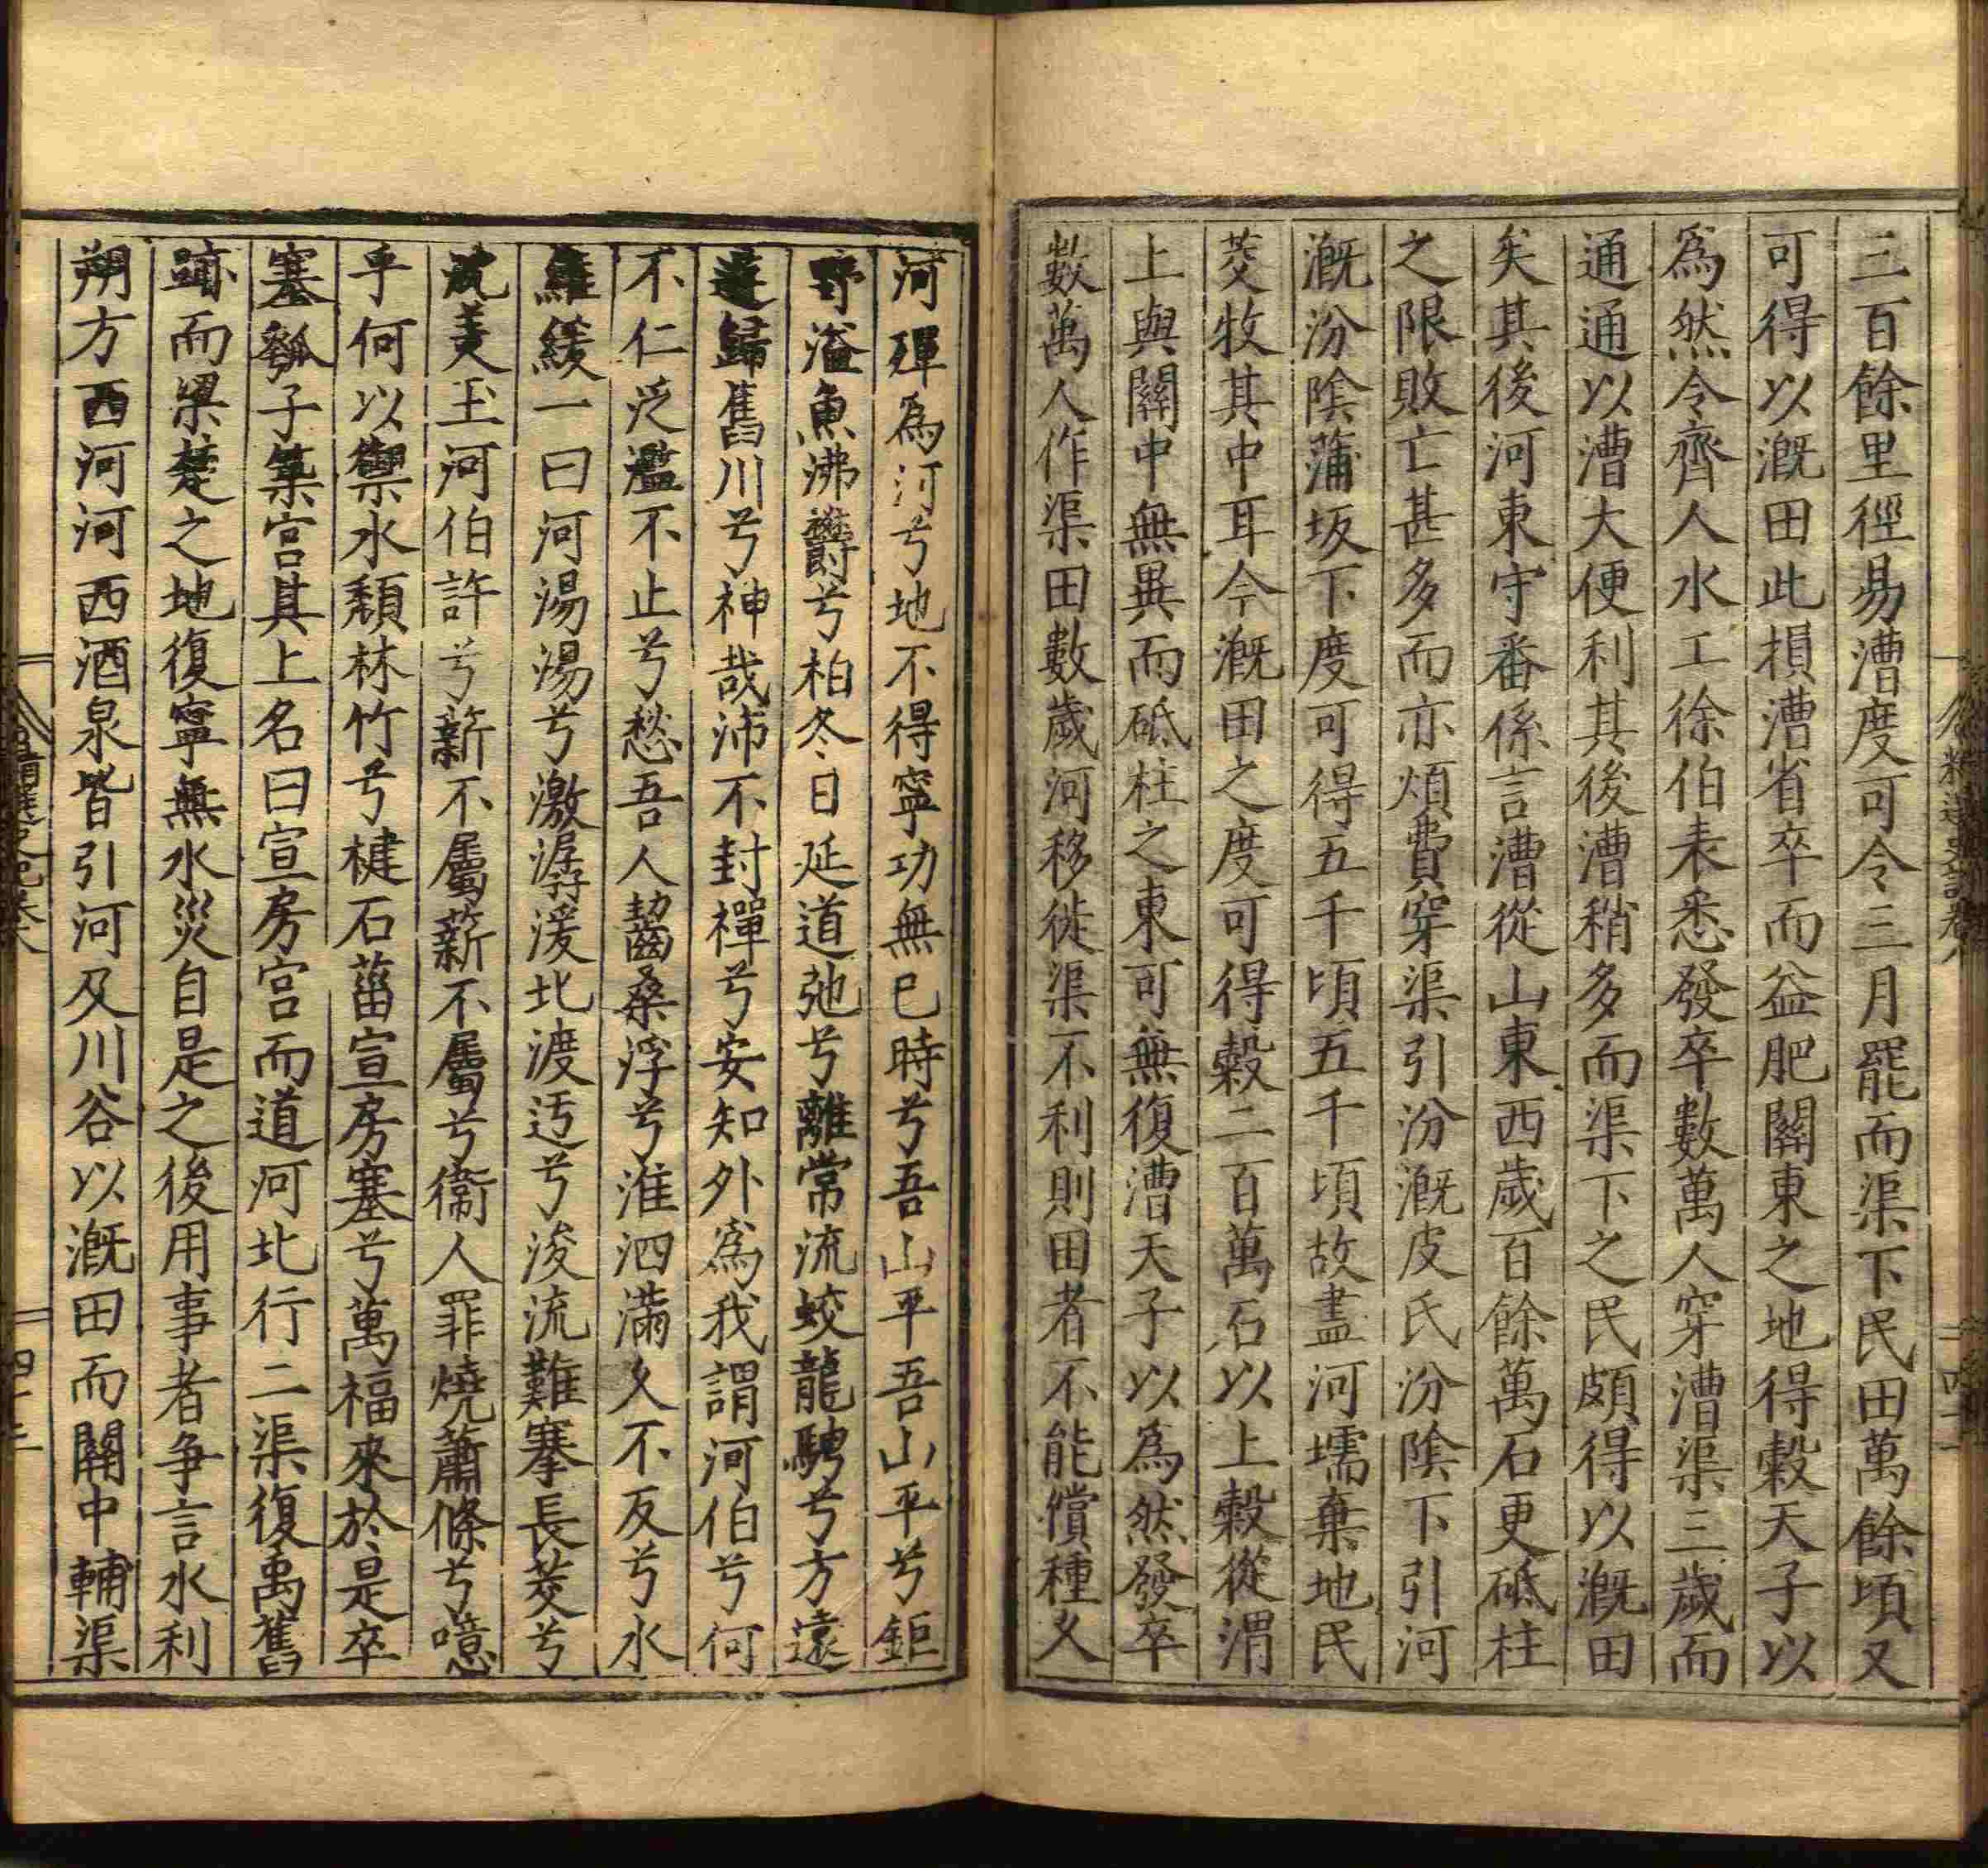 三百餘里徑易漕度可令三月罷而渠下民田萬餘頃又
可得以漑田此損漕省卒而益肥關東之地得穀天子以
爲然令齊人水工徐伯表悉發卒數萬人穿漕渠三歲而
通通以漕大便利其後漕稍多而渠下之民頗得以漑田
矣其後河東守番係言漕從山東西歲百餘萬石更砥柱
之限敗亡甚多而亦煩費穿渠引汾漑皮氏汾陰下引河
漑汾陰蒲坂下度可得五千頃五千頃故盡河壖棄地民
茭牧其中耳今漑田之度可得穀二百萬石以上穀從渭
上與關中無異而砥柱之東可無復漕天子以爲然發卒
數萬人作渠田數歲河移徙渠不利則田者不能償種乂
河殫爲河兮地不得寧功無已時兮吾山平吾山平兮鉅
野溢魚沸欝兮柏冬日延道弛兮離常流蛟龍騁兮方遠
遊歸舊川兮神哉沛不封禪兮安知外爲我謂河伯兮何
不仁泛濫不止兮愁吾人齧桑浮兮淮泗滿久不反兮水
維緩一曰河湯湯兮激潺湲北渡迃兮浚流難搴長茭兮
沈美玉河伯許兮薪不屬薪不屬兮衞人罪燒蕭條兮噫
乎何以禦水頹林竹兮楗石菑宣房塞兮萬福來於是卒
塞瓠子築宮其上名曰宣房宮而道河北行二渠復禹舊
跡而梁楚之地復寧無水災自是之後用事者爭言水利
朔方西河河西酒泉皆引河及川谷以漑田而關中輔渠